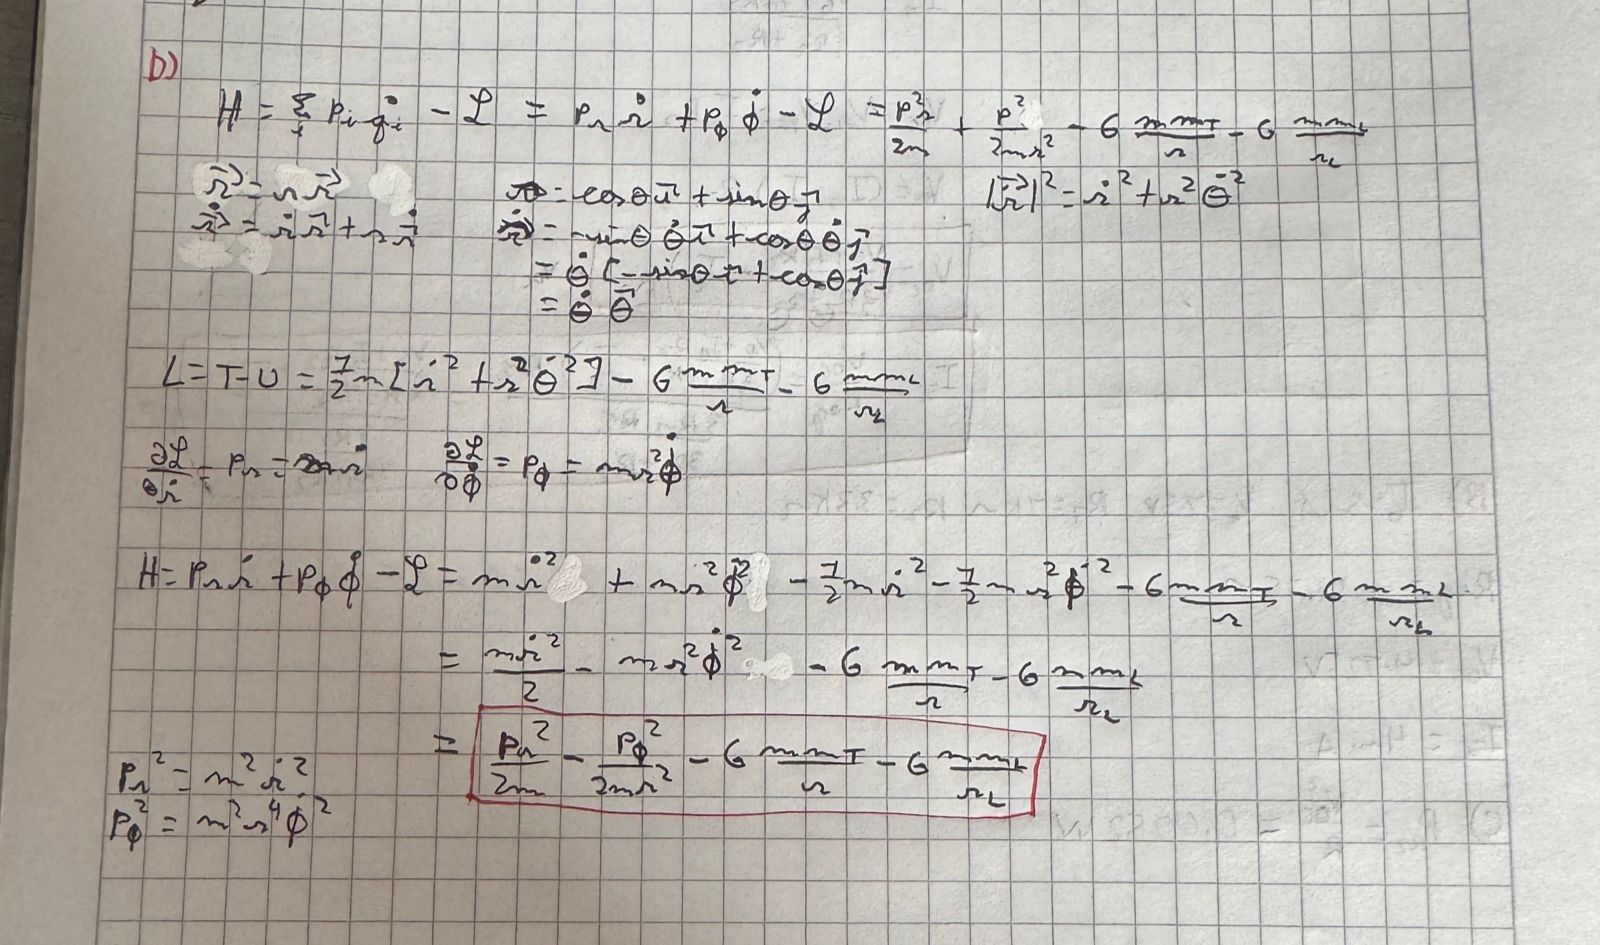 b)
H = Σ_i p_i q̇_i - ℒ = p_r ṙ + p_φ φ̇ - ℒ = p²_r/2m + p²/2mr² - G m m_T/r - G m m_L/r_L
r⃗ = r r⃗    = cosθ i⃗ + sinθ j⃗    |ṙ⃗|² = ṙ² + r² θ̇²
ṙ⃗ = ṙ r⃗ + r ṙ⃗    = -sinθ θ̇ i⃗ + cosθ θ̇ j⃗
= θ̇ [-sinθ i⃗ + cosθ j⃗]
= θ̇ θ⃗
L = T-U = 1/2 m [ṙ² + r² θ̇²] - G m m_T/r - G m m_L/r_L
∂ℒ/∂ṙ = p_r = m ṙ    ∂ℒ/∂φ̇ = p_φ = m r² φ̇
H = p_r ṙ + p_φ φ̇ - ℒ = m ṙ² + m r² φ̇² - 1/2 m ṙ² - 1/2 m r² φ̇² - G m m_T/r - G m m_L/r_L
= m ṙ²/2 - m r² φ̇² - G m m_T/r - G m m_L/r_L
= p_r²/2m - p_φ²/2mr² - G m m_T/r - G m m_L/r_L
p_r² = m² ṙ²
p_φ² = m² r⁴ φ̇²